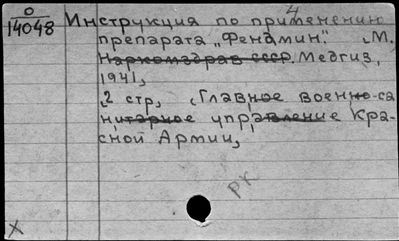 4
О
14048
Инструкция по применению
препарата „Фенамин." М.
Наркомздрав СССР, Медгиз,
1941,
2 стр, (Главное военно-са
нитарное управление Кра-
сной Армии,
РК
X